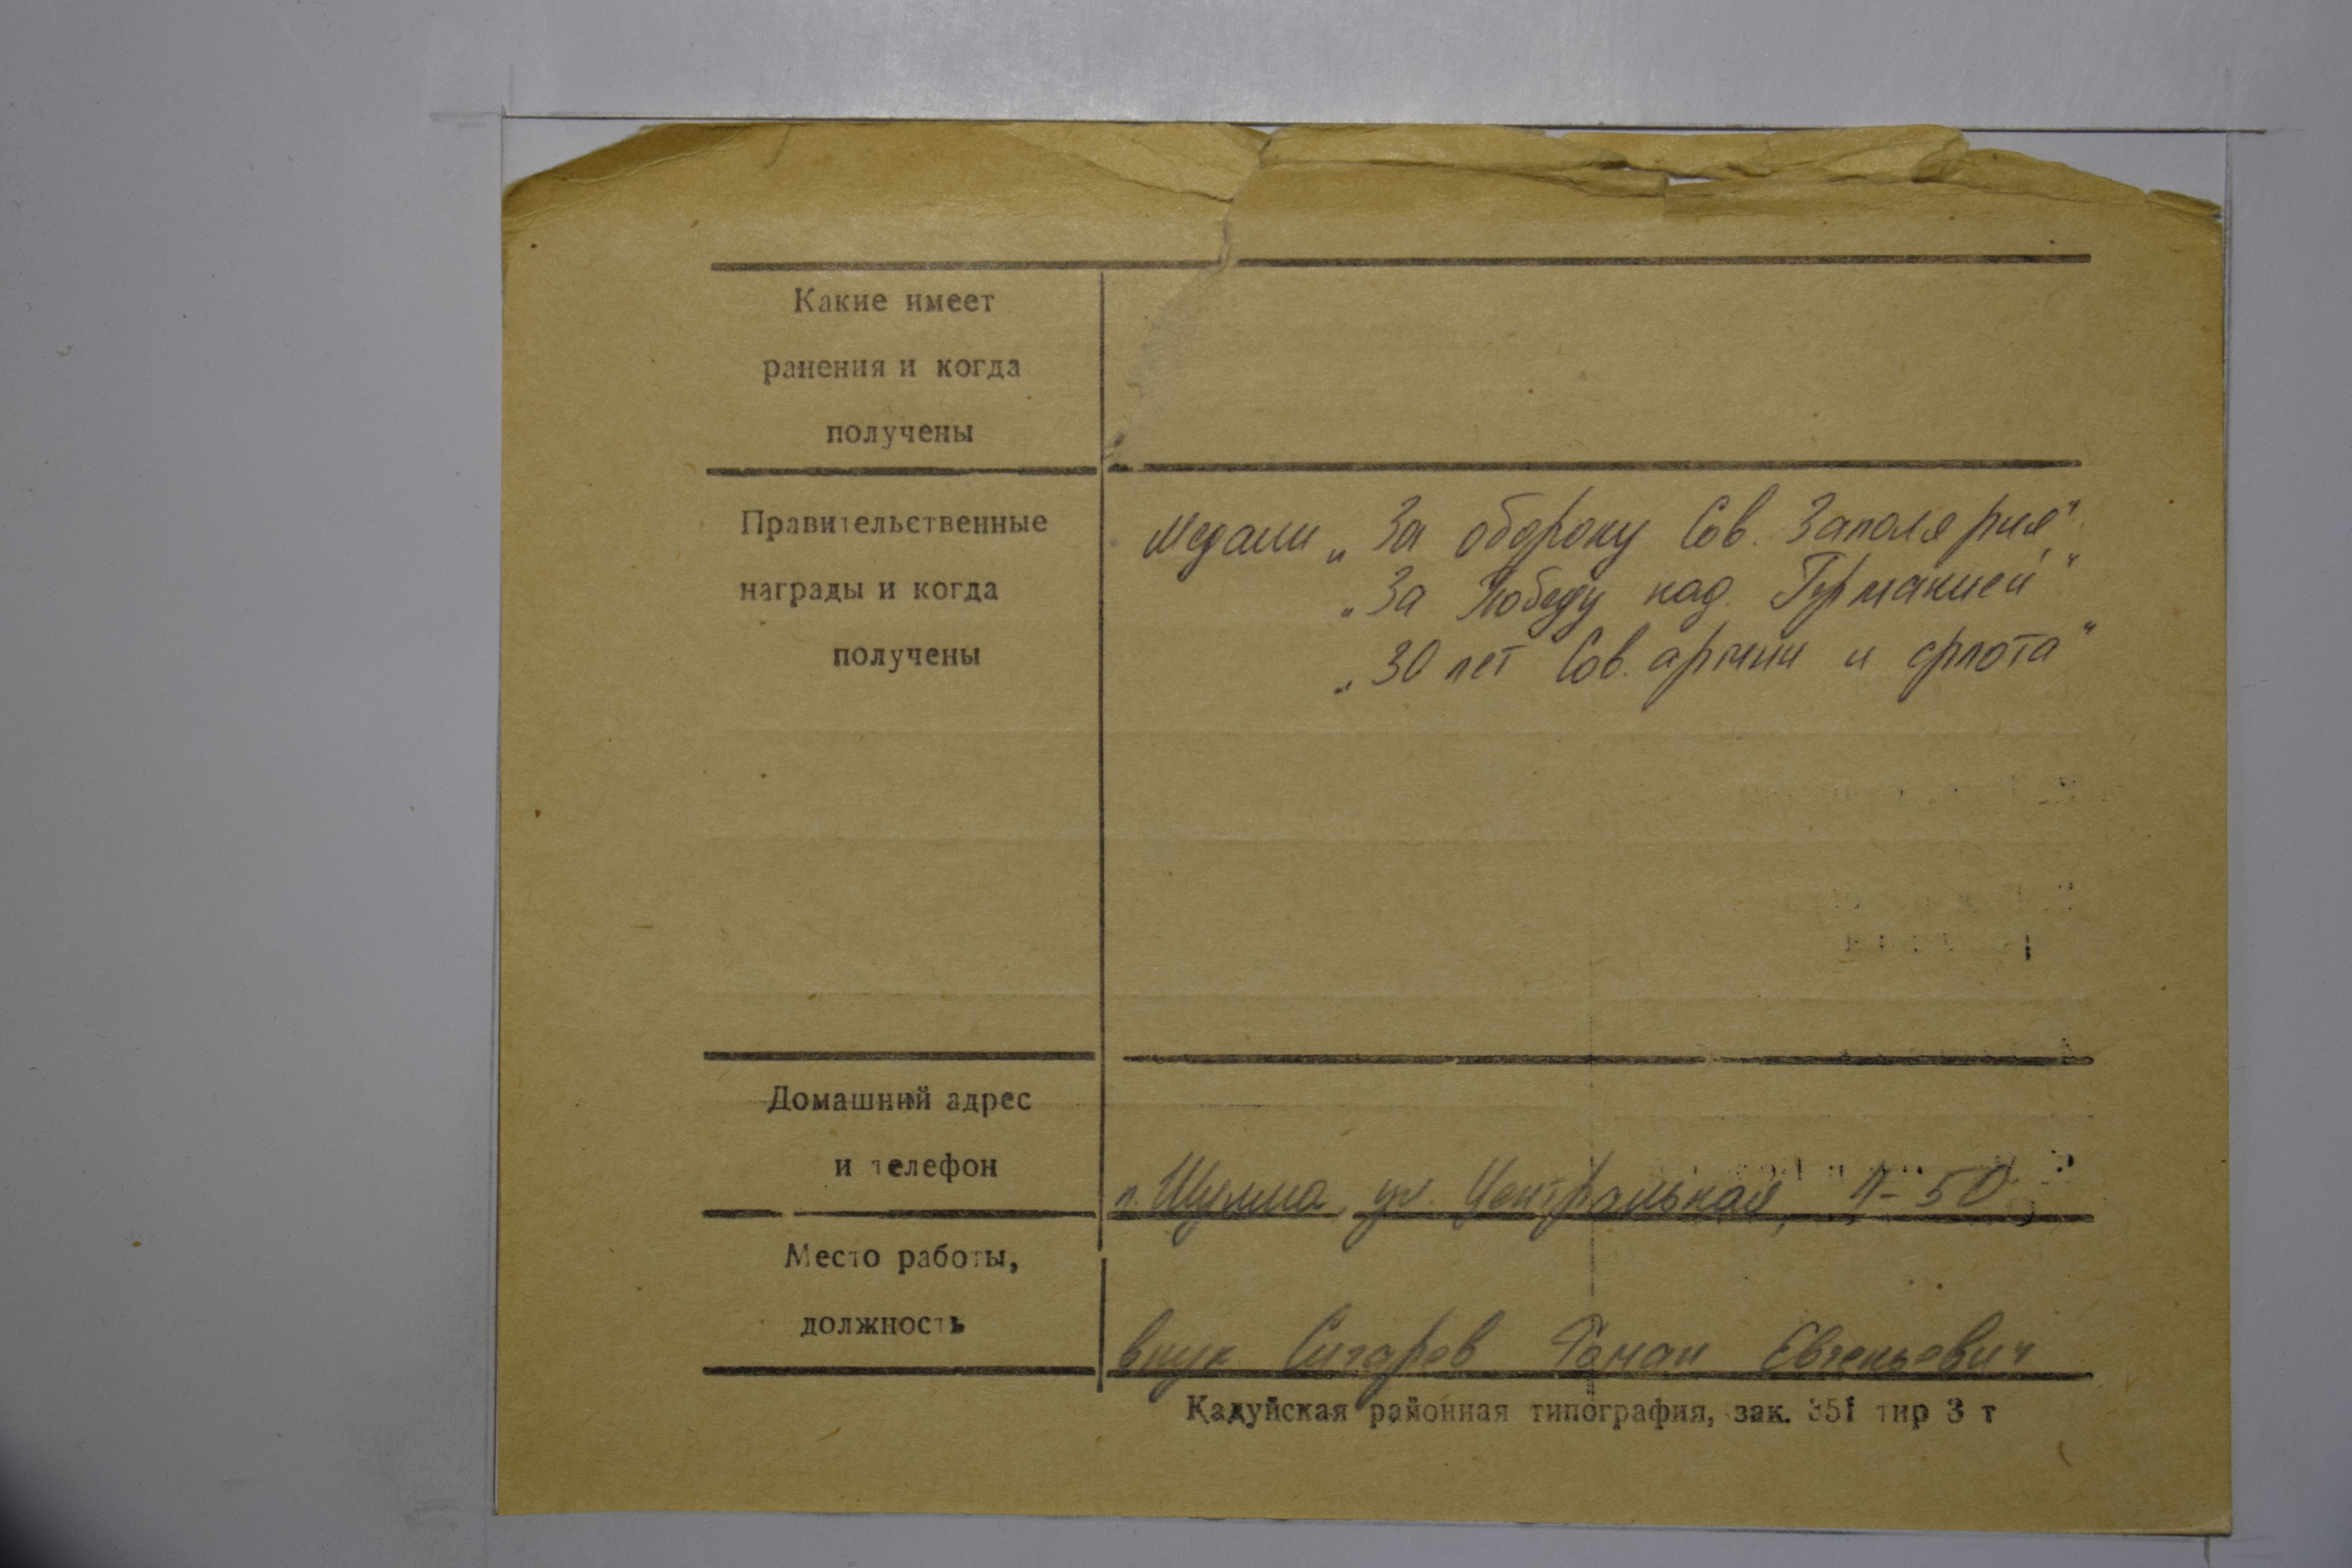 Какие имеет
ранения и когда
получены
Правительственные
награды и когда
получены
Медали „За оборону Сов. Заполярия"
„За Победу над Германией"
„30 лет Сов. армии и флота"
Домашний адрес
и телефон
п. Шулма, ул. Центральная, 4-50,
Место работы,
должность
внук Сигарев Роман Евгеньевич
Кадуйская районная типография, зак. 351 тир 3 т